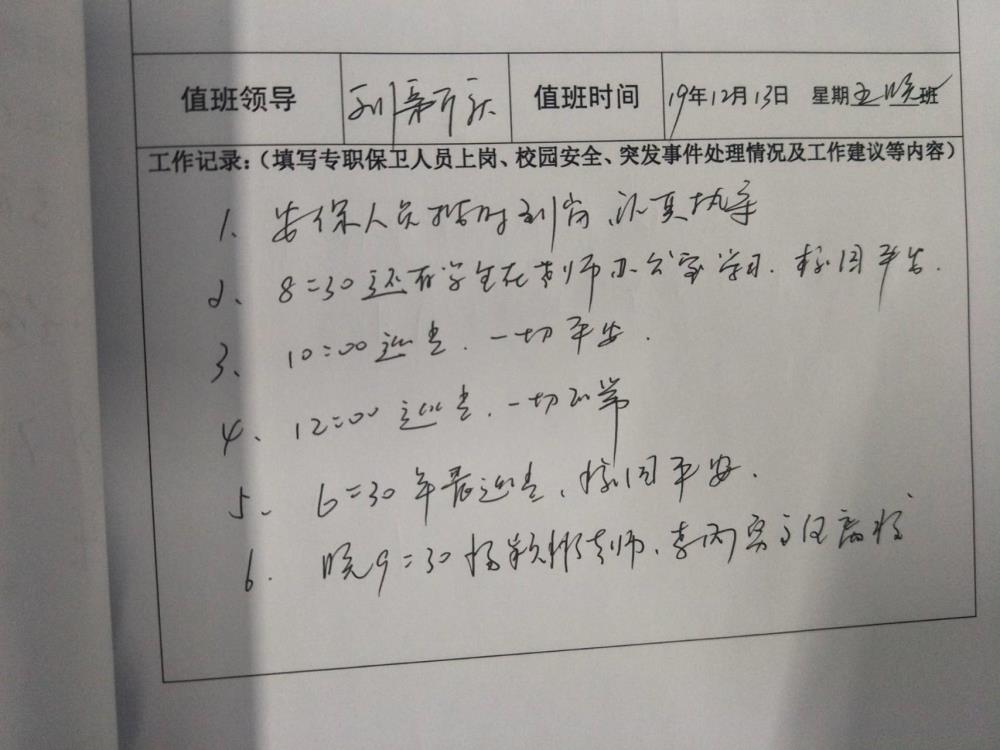 值班领导 刘 值班时间 19年12月13日 星期五晚班
工作记录:(填写专职保卫人员上岗、校园安全、突发事件处理情况及工作建议等内容)
1、安保人员按时到岗、认真执守
2、8:30还有学生在教师办公室学习.校园平安.
3、10:00巡查.一切平安.
4、12:00巡查.一切正常
5、6:30早晨巡查、校园平安.
6.晚9:30杨颖彬老师、李丙 主任离校